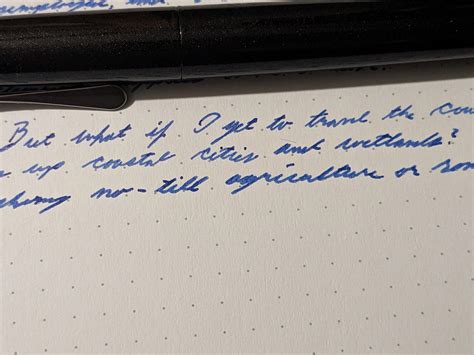 unemployed, and
But what if I get to travel the cou
up coastal cities and wetlands?
no-till agriculture or som